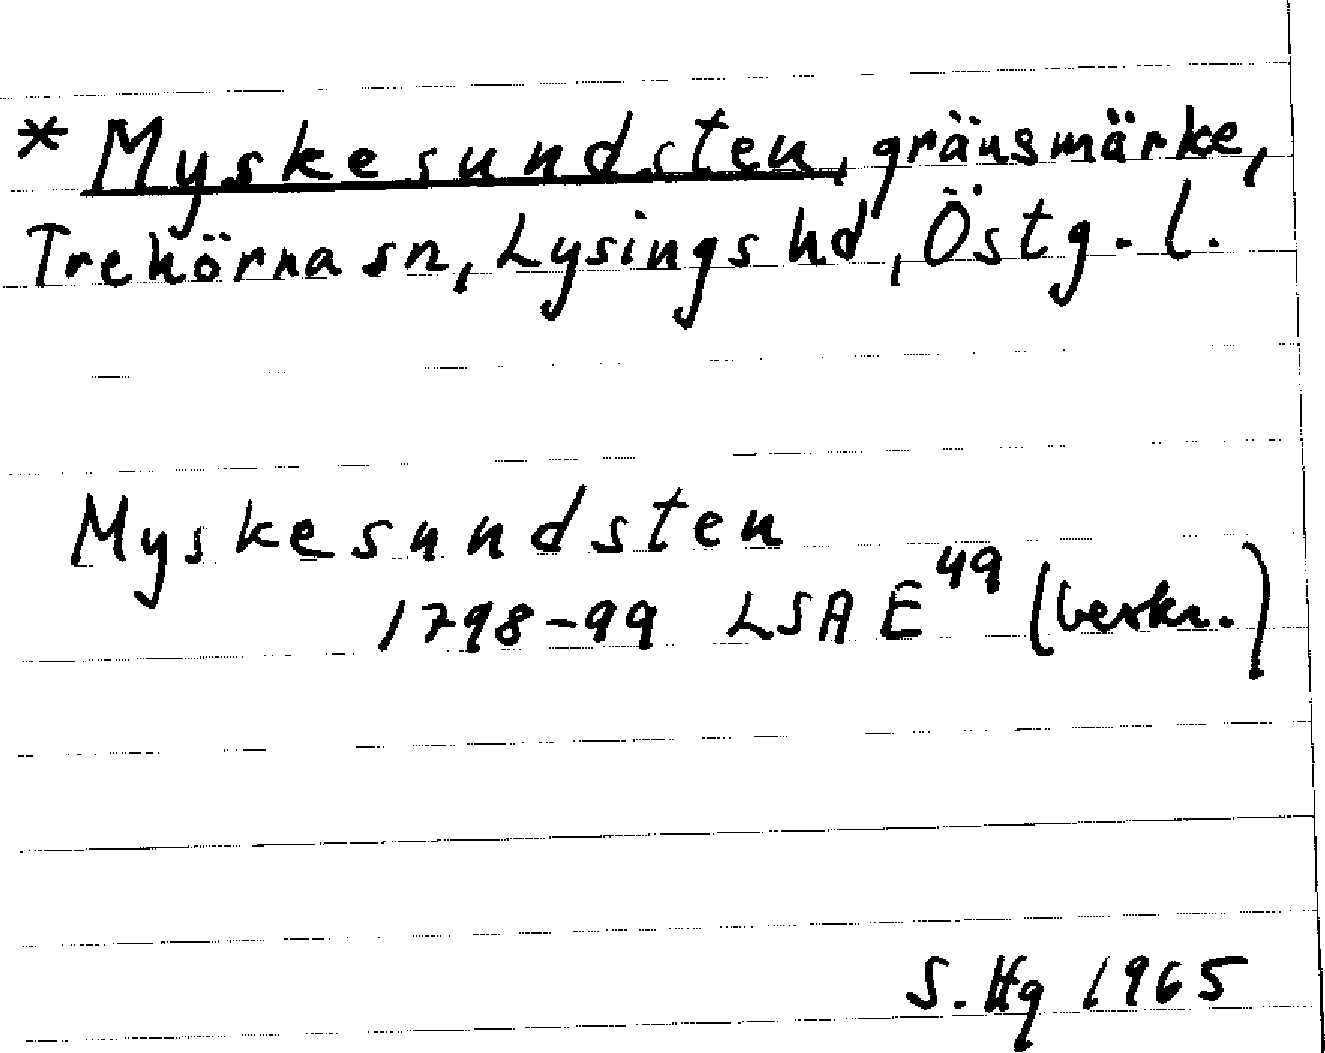 * Myskesundsten, gränsmärke,
Trehörna sn, Lysings hd, Östg. l.
Myskesundsten
1798-99 LSA E49 (beskr.)
S. Hg 1965